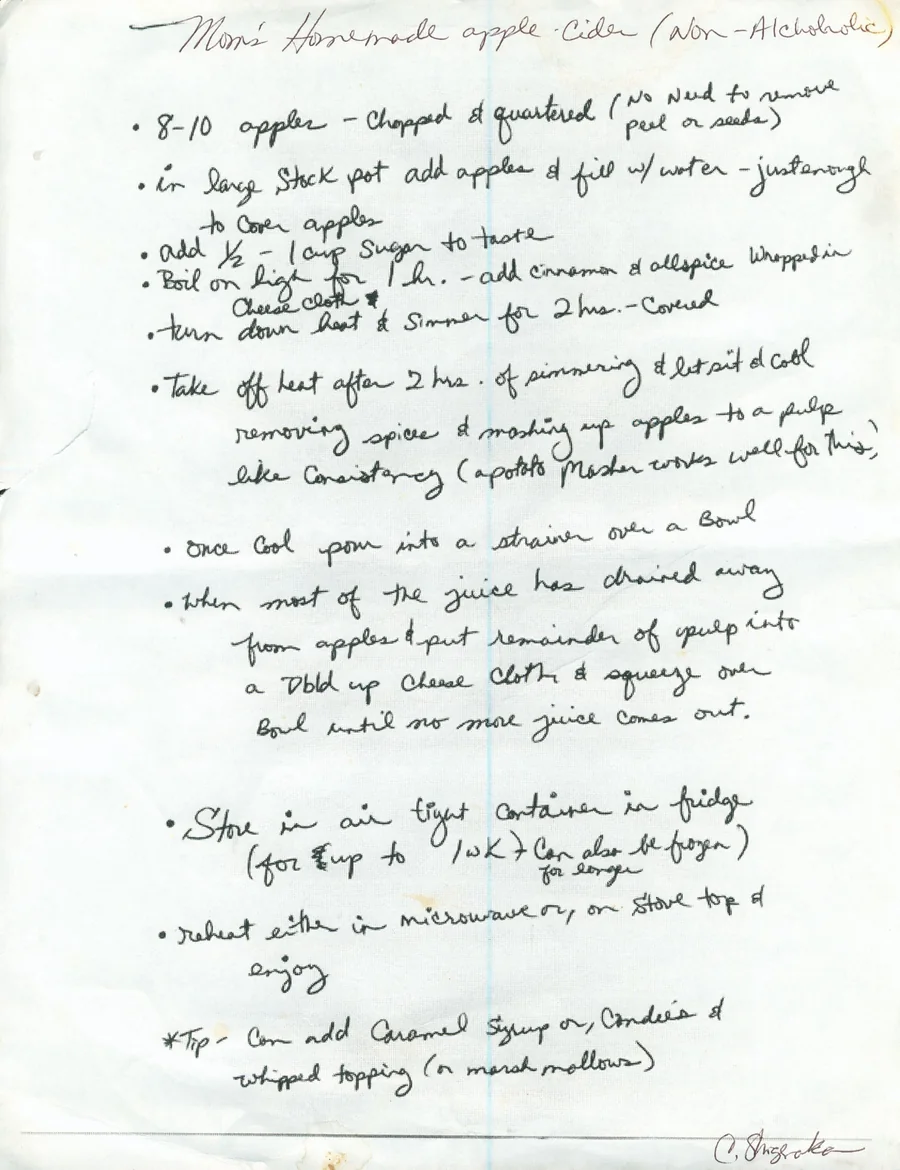 Mom's Homemade apple-Cider (Non-Alchoholic)
• 8-10 apples - Chopped & quartered (No Need to remove
peel or seeds)
• in large Stock pot add apples & fill w/ water - just enough
to Cover apples
• add 1/2 - 1 cup Sugar to taste
• Boil on high for 1 hr. - add Cinnamon & allspice Wrapped in
Cheese Cloth
• turn down heat & Simmer for 2 hrs. - Covered
• Take off heat after 2 hrs. of simmering & let sit & cool
removing spices & mashing up apples to a pulp
like Consistency (a potato Masher works well for this)
• Once Cool pour into a strainer over a Bowl
• When most of the juice has drained away
from apples & put remainder of pulp into
a Dbld up Cheese Cloth & squeeze over
Bowl until no more juice comes out.
• Store in air tight container in fridge
(for up to 1 wK) + Can also be frozen)
for longer
• reheat either in microwave or, on Stove top &
enjoy
*Tip - Can add Caramel Syrup or, Candies &
whipped topping (or marsh mallows)
C.